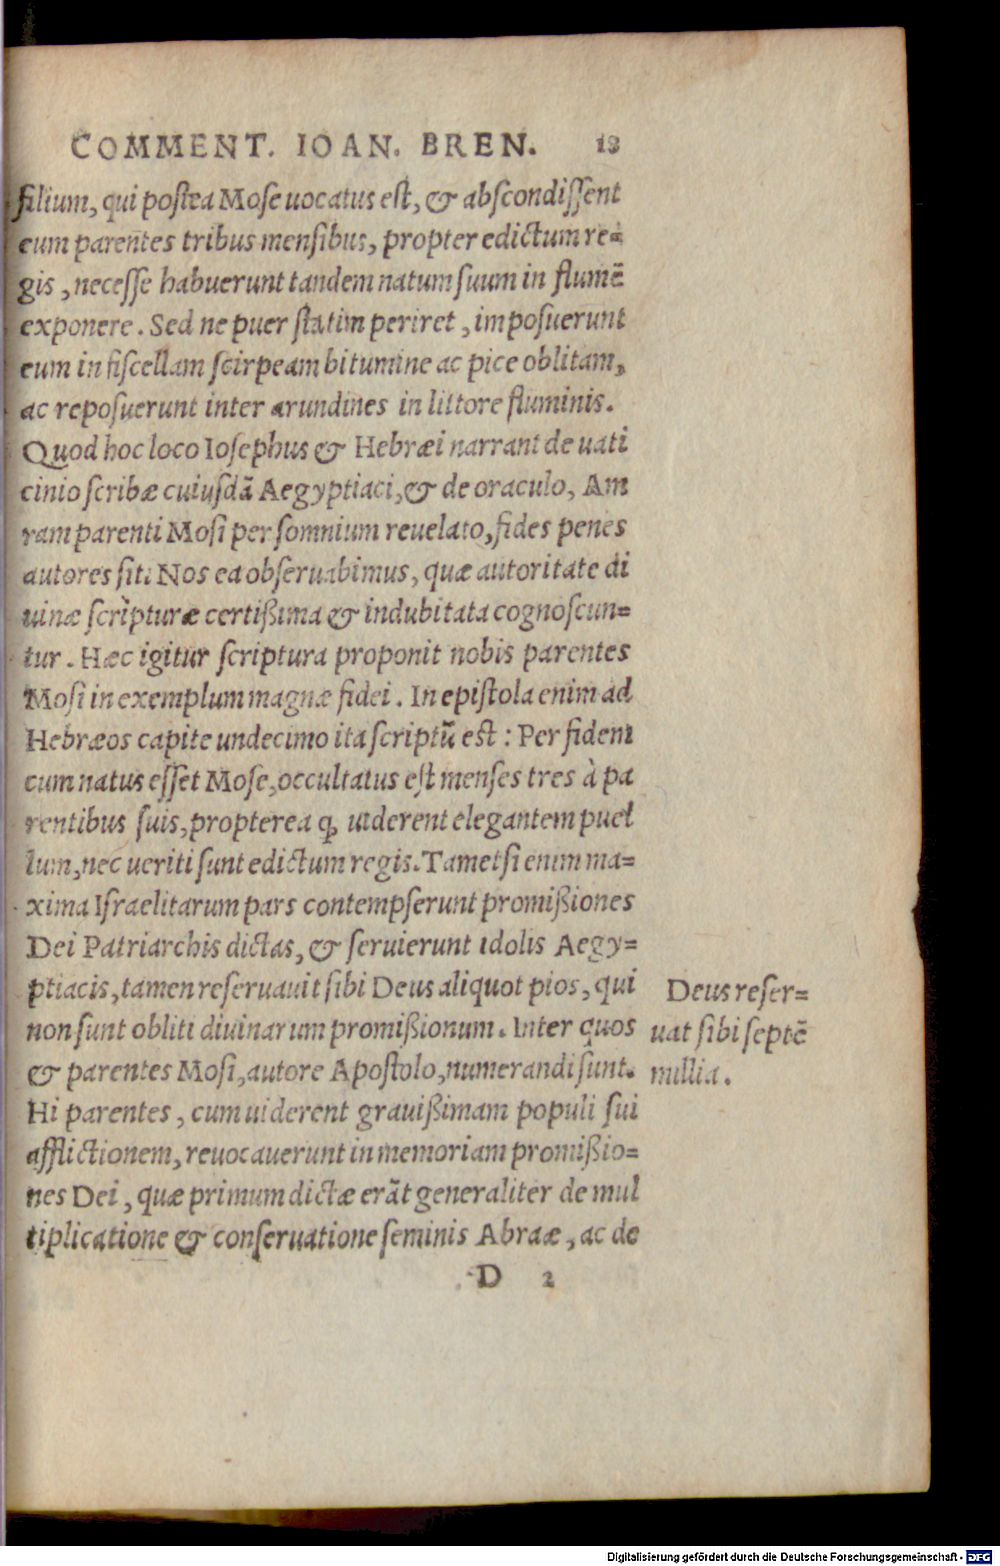 COMMENT. IOAN. BREN. 18
filium, qui postea Mose uocatus est, & abscondissent
eum parentes tribus mensibus, propter edictum re=
gis, necesse habuerunt tandem natum suum in flumē
exponere. Sed ne puer statim periret, imposuerunt
eum in fiscellam scirpeam bitumine ac pice oblitam,
ac reposuerunt inter arundines in littore fluminis.
Quod hoc loco Iosephus & Hebræi narrant de uati
cinio scribæ cuiusdā Aegyptiaci, & de oraculo, Am
ram parenti Mosi per somnium reuelato, fides penes
autores sit. Nos ea obseruabimus, quæ autoritate di
uinæ scripturæ certißima & indubitata cognoscun=
tur. Hæc igitur scriptura proponit nobis parentes
Mosi in exemplum magnæ fidei. In epistola enim ad
Hebræos capite undecimo ita scriptū est: Per fidem
cum natus esset Mose, occultatus est menses tres à pa
rentibus suis, propterea q, uiderent elegantem puel
lum, nec ueriti sunt edictum regis. Tametsi enim ma=
xima Israelitarum pars contempserunt promißiones
Dei Patriarchis dictas, & seruierunt idolis Aegy=
ptiacis, tamen reseruauit sibi Deus aliquot pios, qui
non sunt obliti diuinarum promißionum. Inter quos
& parentes Mosi, autore Apostolo, numerandi sunt.
Hi parentes, cum uiderent grauißimam populi sui
afflictionem, reuocauerunt in memoriam promißio=
nes Dei, quæ primum dictæ erāt generaliter de mul
tiplicatione & conseruatione seminis Abraæ, ac de
D 2
Deus reser=
uat sibi septē
millia.
Digitalisierung gefördert durch die Deutsche Forschungsgemeinschaft - DFG